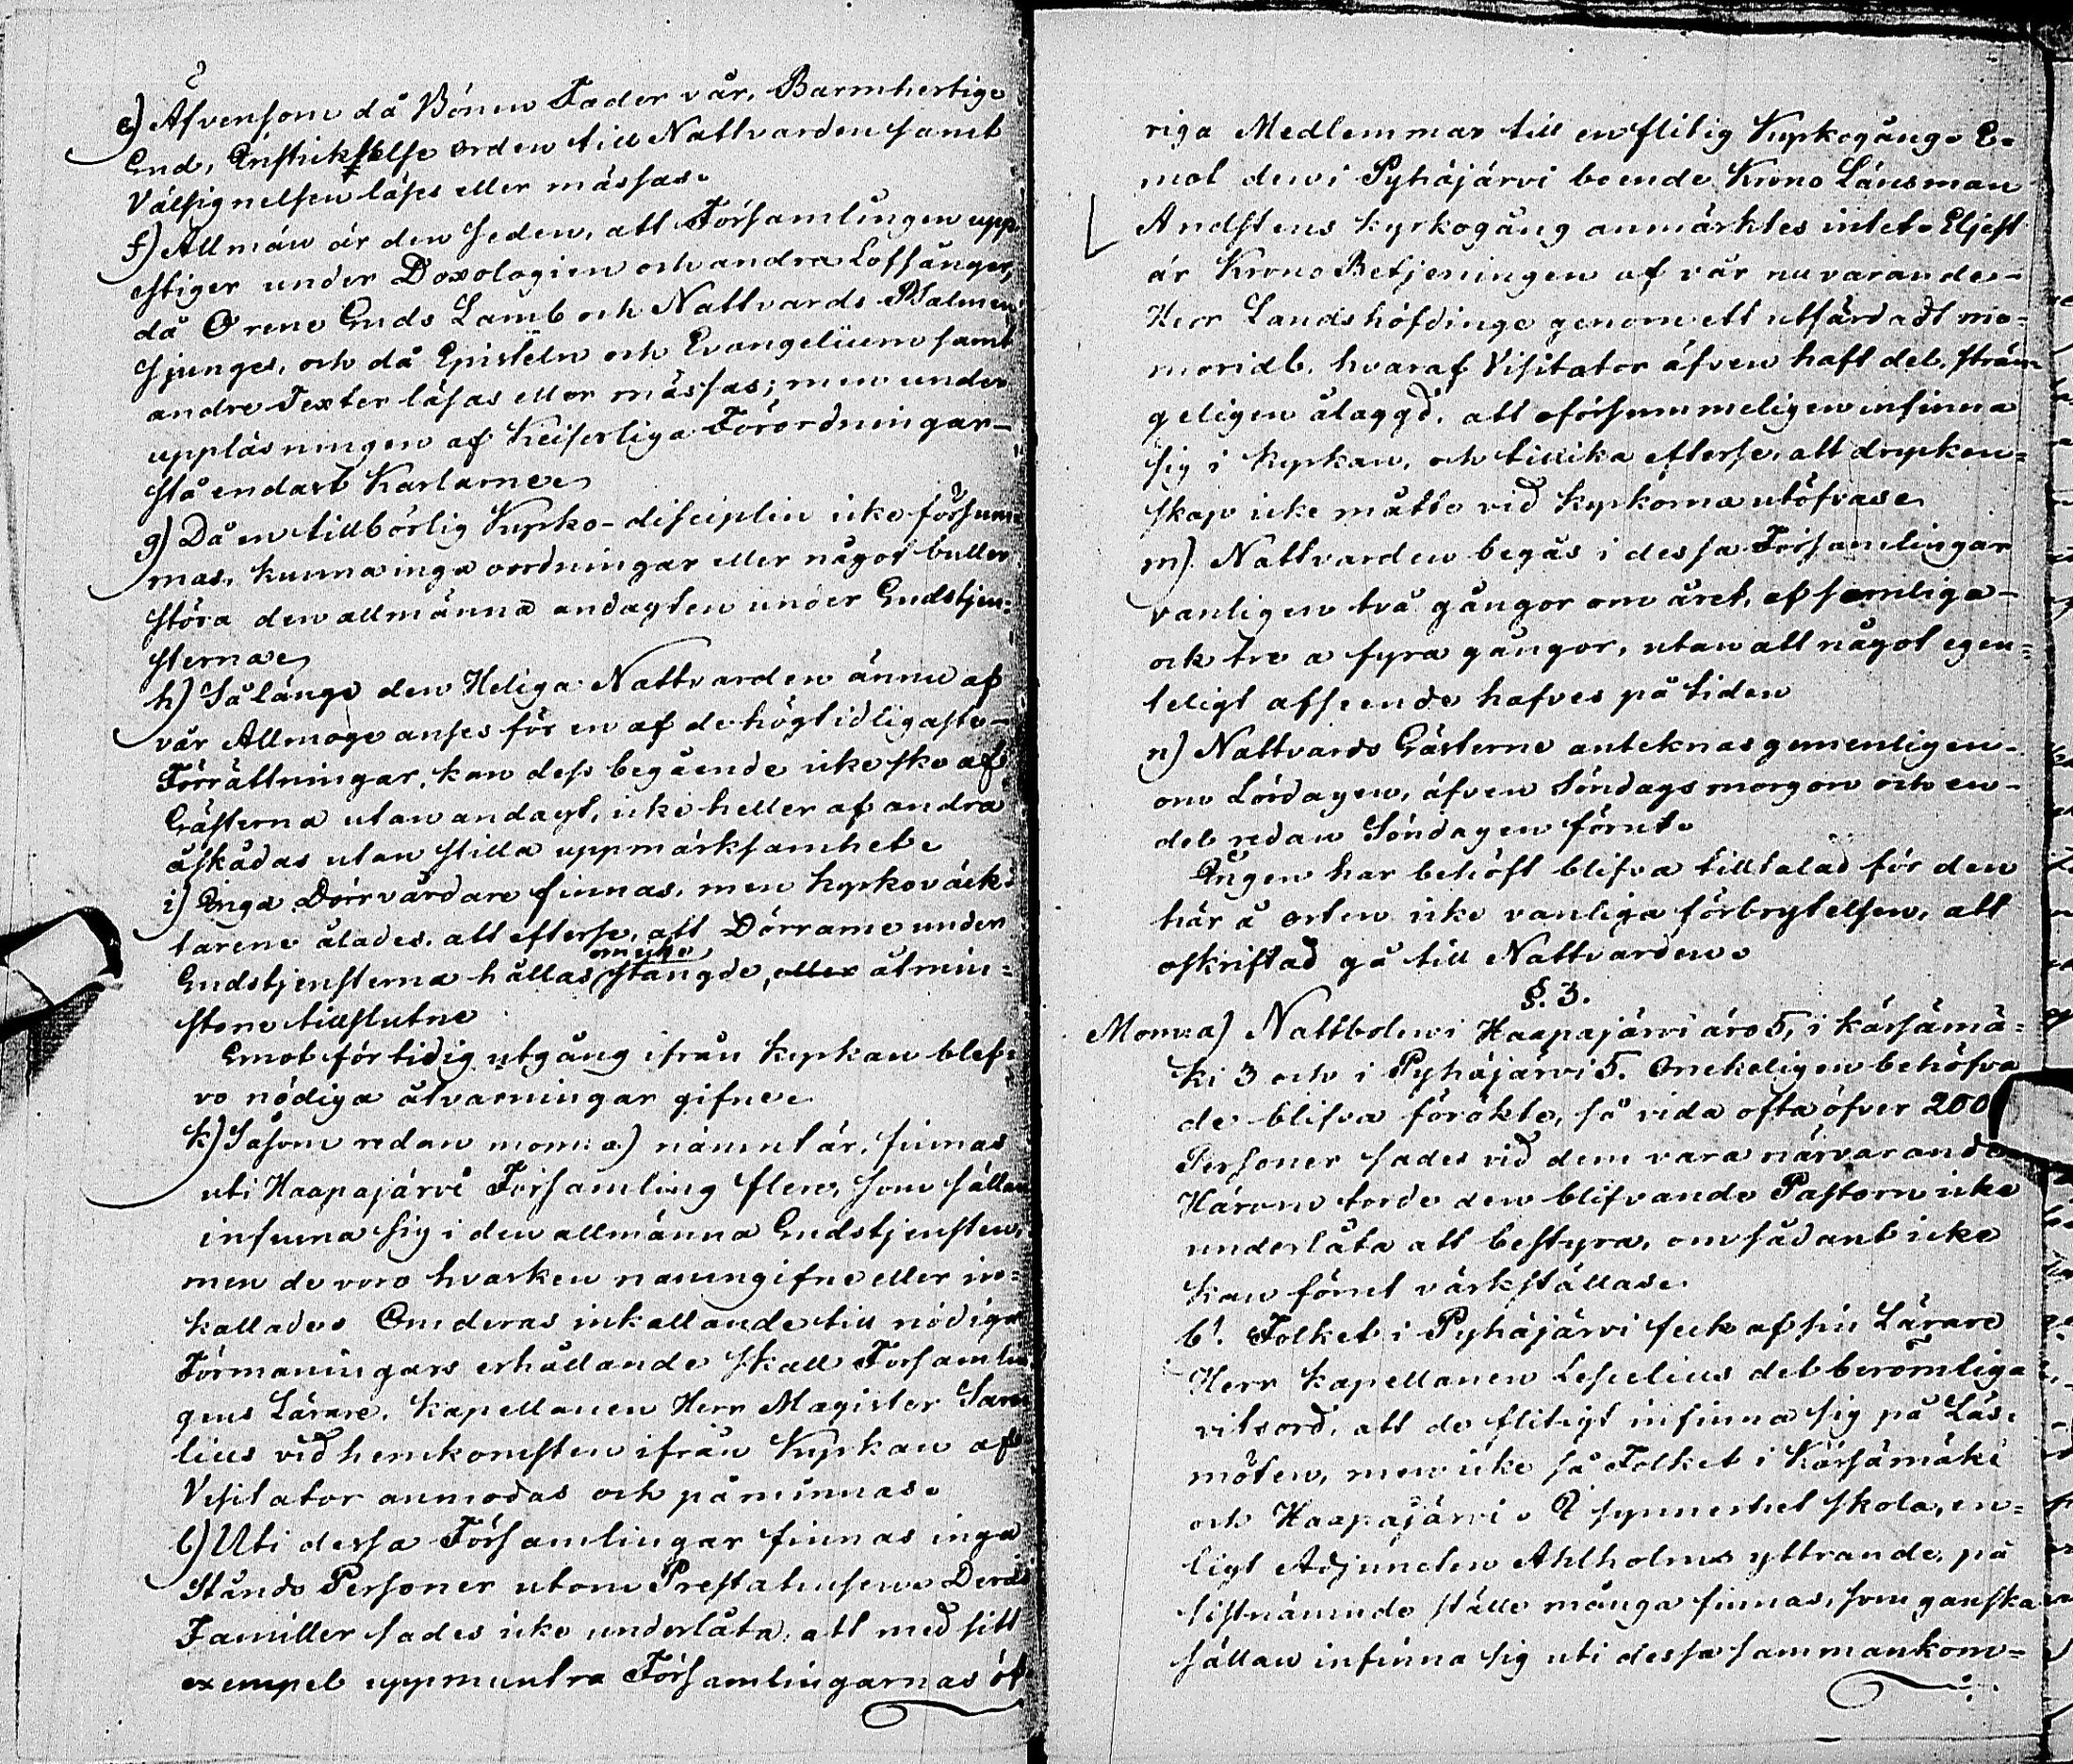 e) Äfvensom då Bönen Fader vår, Barmhertige
Gud, Instiktelse orden till Nattvarden samt
Välsignelsen läses eller mässas.
f) Allmän är den seden, att Församlingen upp
stiger under Doxologien och andra Lofsånger,
då O rene Guds Lamb och Nattvards Psalmen
sjunges, och då Episteln och Evangelium samt
andre Texter läsas eller mässas; men under
uppläsningen af Keiserliga Förordningar
stå endast Karlarne.
g) Då en tillbörlig Kyrko-disciplin icke försum
mas, kunna inga oordningar eller något buller
störa den allmänna andagten under Gudstjen=
sterna.
h) Så länge den Heliga Nattvarden ännu af
vår Allmoge anses för en af de högtidligaste
Förrättningar, kan dess begående icke ske af
Gästerna utan andagt, icke heller af andra
åskådas utan stilla uppmärksamhet.
i) Inga Dörrvårdare finnas, men kyrkoväck=
tarene ålades, att efterse, att Dörrarne under
Gudstjensterna hållas stängde, eller åtmin=
stone tillslutne
Emot för tidig utgång ifrån kyrkan blef=
vo nödiga åtvarningar gifne.
k) Såsom redan mom: a) nämnt är, finnas
uti Haapajärvi Församling flere, som sällan
infinna sig i den allmänna Gudstjensten,
men de voro hvarken namngifne eller in=
kallade. Om deras inkallande till nödiga
Förmaningars erhållande skall Församlin
gens Lärare, Kapellanen Herr Magister
lius vid hemkomsten ifrån Kyrkan af
Visitator anmodas och påminnas.
l) Uti dessa Församlingar finnas inga
Stånds Personer utom Prestahusen. Deras
Familler sades icke underlåta, att med sitt
exempel uppmuntra Församlingarnas öf
riga Medlemmar till en flitig Kyrkogång. E=
mot den i Pyhäjärvi boende Krono Länsman
Andstens kyrkogång anmärktes intet. Eljest
är Krono Betjeningen af vår nuvarande
Herr Landshöfdinge genom ett utfärdadt me=
morial, hvaraf Visitator äfven haft del, strän
geligen ålaggd, att oförsummeligen infinna
sig i kyrkan, och tillika efterse, att drycken=
skap icke måtte vid kyrkorna utöfvas.
m) Nattvarden begås i dessa Församlingar
vanligen två gångor om året, af somliga
ock tre a fyra gångor, utan att något egen=
teligt afseende hafves på tiden
n) Nattvards Gästerne anteknas gemenligen
om Lördagen, äfven Söndags morgon och en
del redan Söndagen förut.
Ingen har behöft blifva tilltalad för den
här å orten icke vanliga förbrytelsen, att
oskriftad gå till Nattvarden.
§. 3.
Mom: a) Nattbolen i Haapajärvi äro 5, i Kärsämä=
ki 3 och i Pyhäjärvi 5. Onekeligen behöfva
de blifva förökte, så vida ofta öfver 200
Personer sades vid dem vara närvarande
Härom torde den blifvande Pastorn icke
underlåta att bestyra, om sådant icke
kan förut värkställas.
b). Folket i Pyhäjärvi feck af sin Lärare
Herr Kapellanen Lescelius det berömliga
vitsord, att de flitigt infinna sig på Läs=
möten, men icke så Folket i Kärsämäki
och Haapajärvi. I synnerhet skola, en=
ligt Adjuncten Ahlholms yttrande, på
sistnämnde ställe många finnas, som ganska
sällan infinna sig uti dessa sammankom=